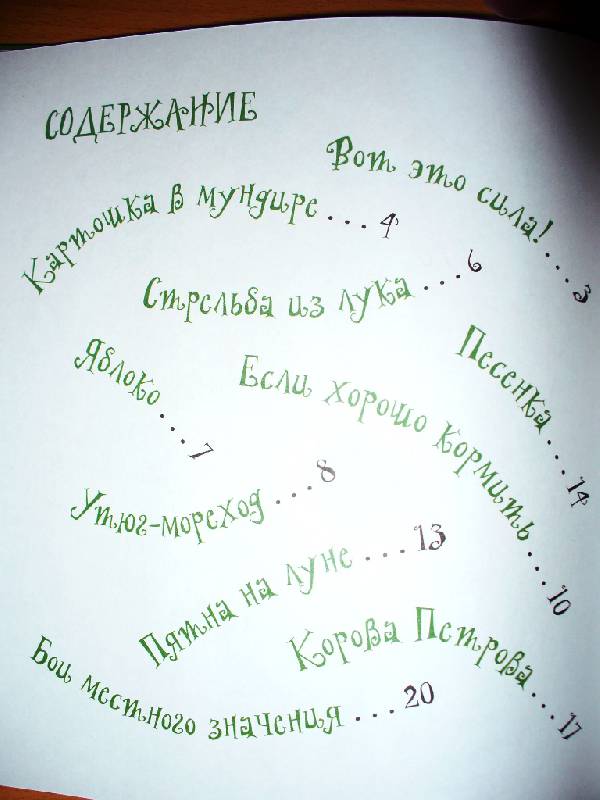 СОДЕРЖАНИЕ
Вот это сила! . . . 3
Картошка в мундире . . . 4
Стрельба из лука . . . 6
Яблоко . . . 7
Если хорошо кормить . . . 10
Песенка . . . 14
Утюг-мореход . . . 8
Пятна на луне . . . 13
Корова Петрова . . . 17
Бои местного значения . . . 20